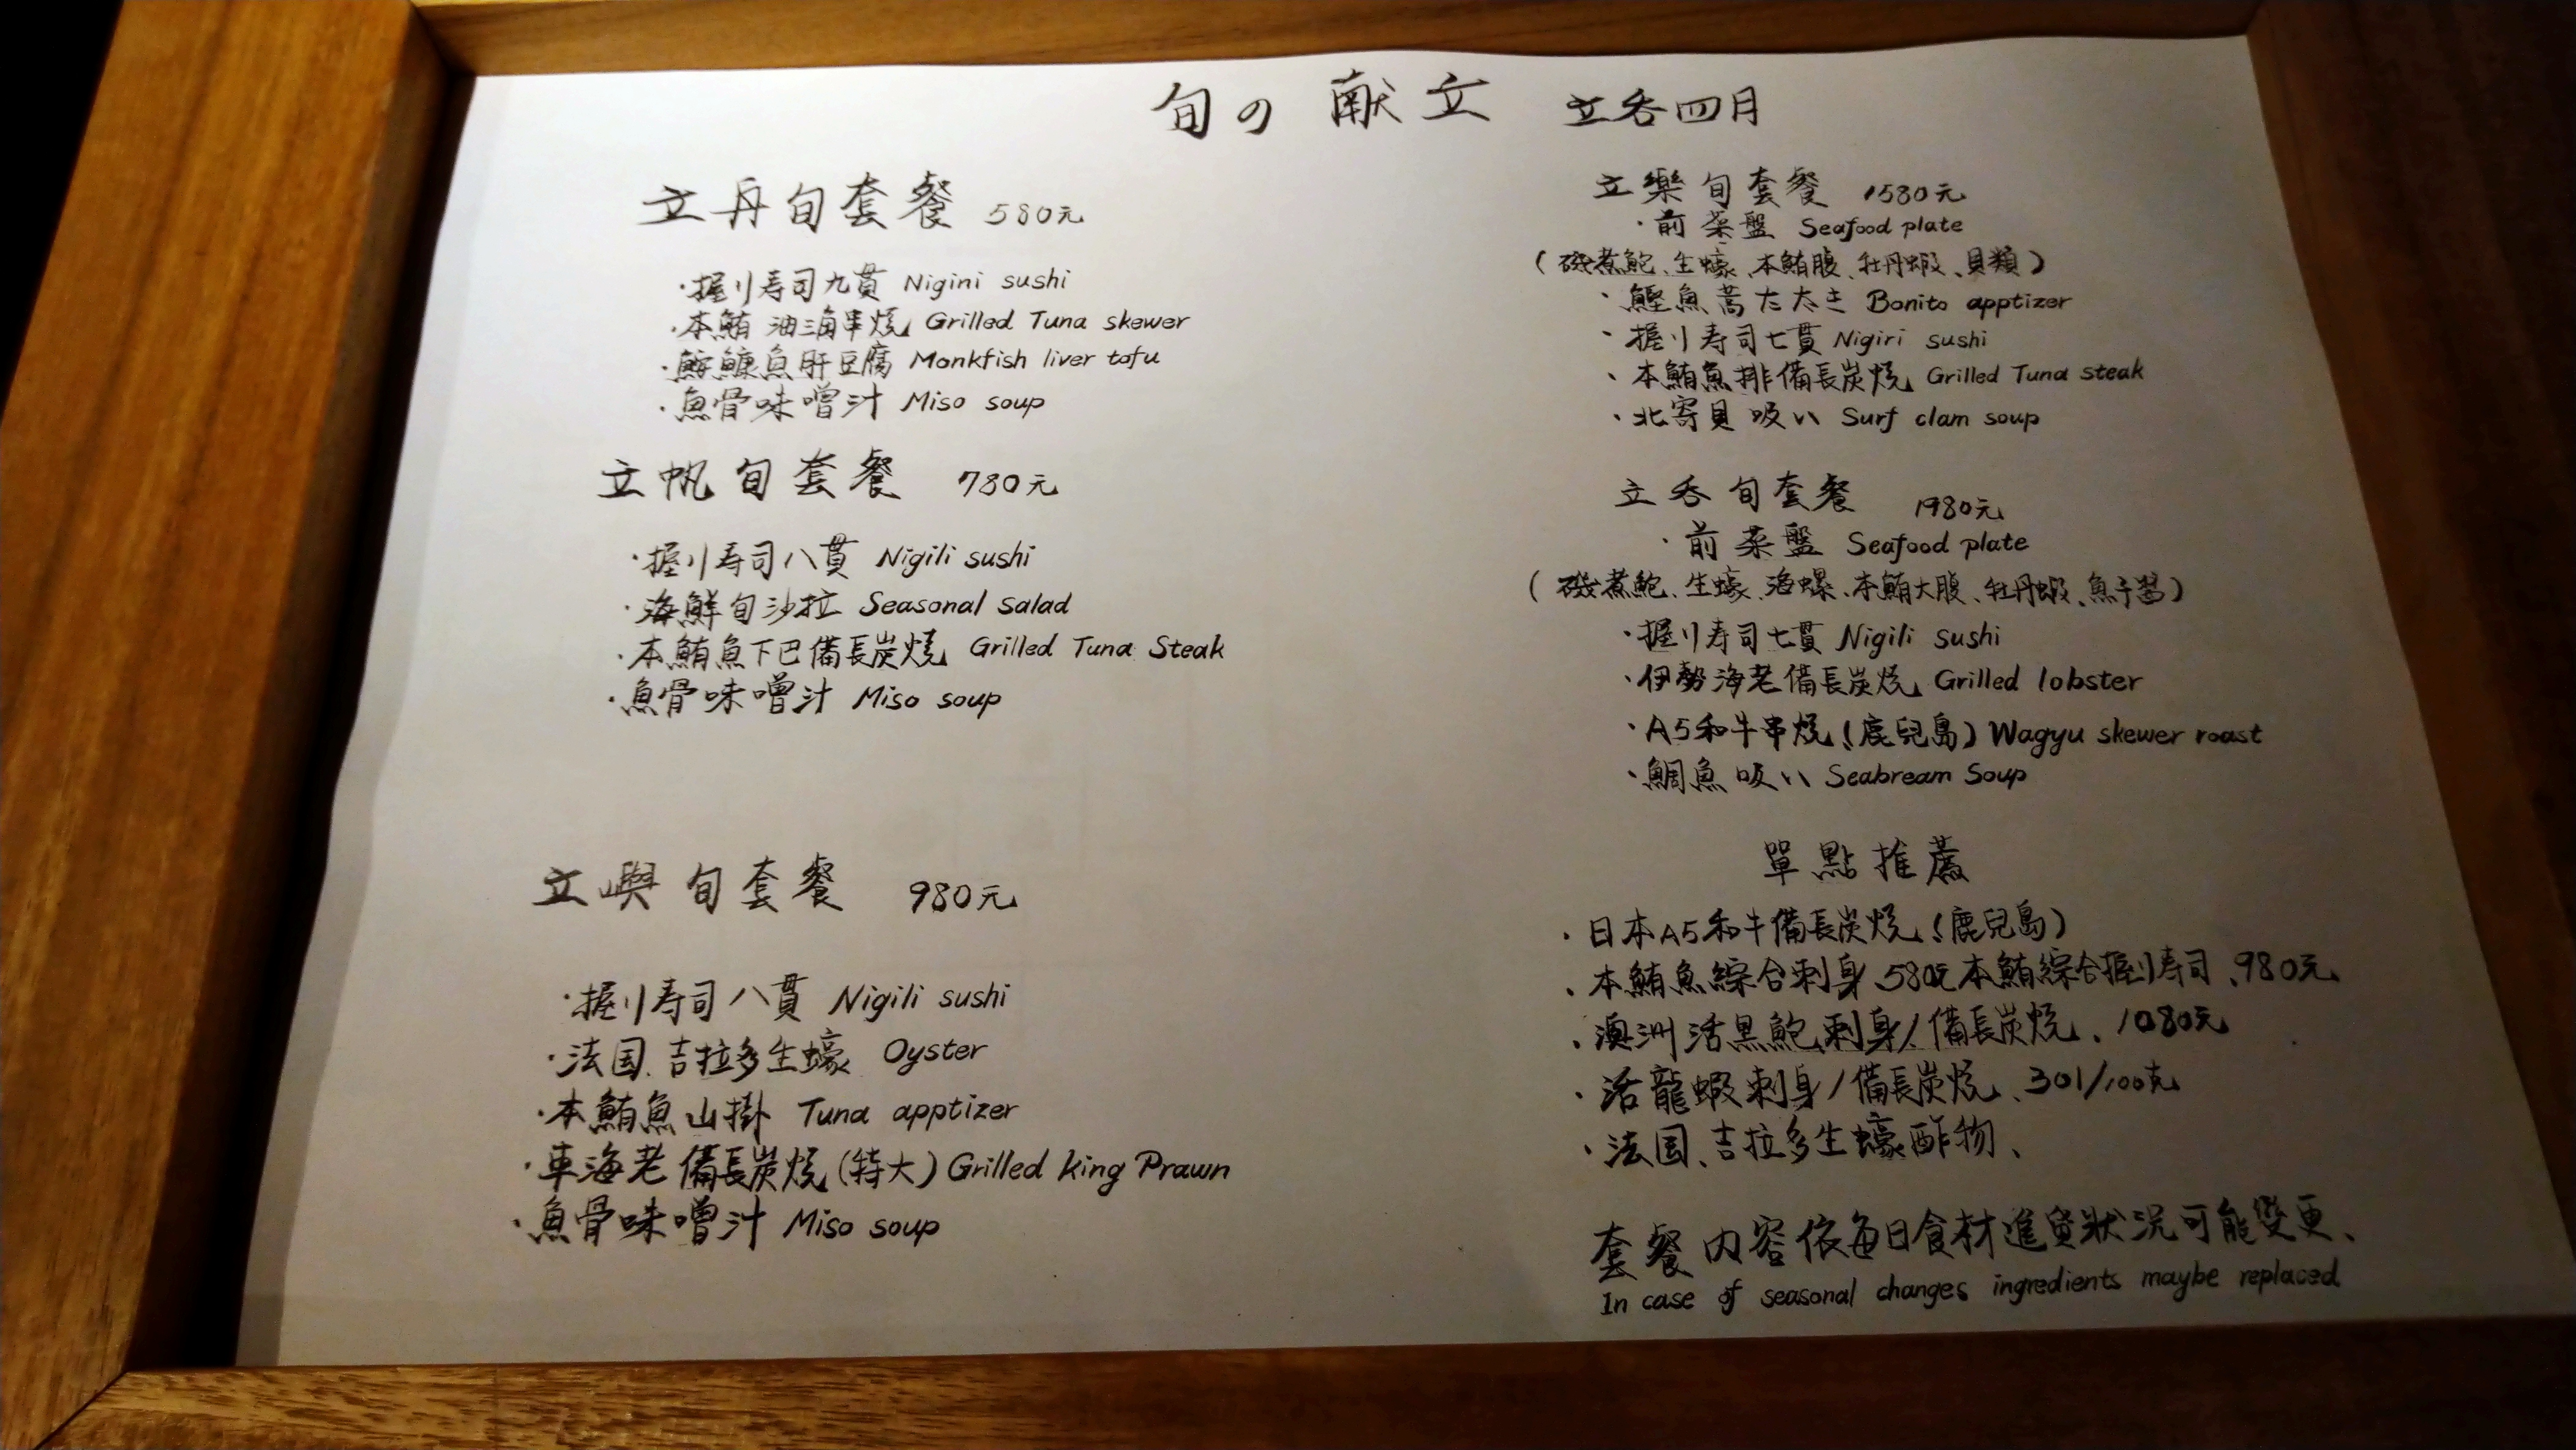 旬の 献立 立呑四月
立丹旬套餐 580元
·握り寿司九貫 Nigini sushi
·本鮪 油滷串燒 Grilled Tuna skewer
·鮟鱇魚肝豆腐 Monkfish liver tofu
·魚骨味噌汁 Miso soup
立帆旬套餐 780元
·握り寿司八貫 Nigili sushi
·海鮮旬沙拉 Seasonal salad
·本鮪魚下巴備長炭燒 Grilled Tuna Steak
·魚骨味噌汁 Miso soup
立嶼旬套餐 980元
·握り寿司八貫 Nigili sushi
·法国、吉拉多生蠔 Oyster
·本鮪魚山掛 Tuna apptizer
·車海老備長炭燒(特大) Grilled king Prawn
·魚骨味噌汁 Miso soup
立樂旬套餐 1580元
·前菜盤 Seafood plate
(磯煮鮑、生蠔、本鮪腹、牡丹蝦、貝類)
·鰹魚蒿たたき Bonito apptizer
·握り寿司七貫 Nigiri sushi
·本鮪魚排備長炭燒 Grilled Tuna steak
·北寄貝吸い Surf clam soup
立呑旬套餐 1980元
·前菜盤 Seafood plate
(磯煮鮑、生蠔、活螺、本鮪大腹、牡丹蝦、魚子醬)
·握り寿司七貫 Nigili sushi
·伊勢海老備長炭燒 Grilled lobster
·A5和牛串燒(鹿兒島) Wagyu skewer roast
·鯛魚吸い Seabream Soup
單點推薦
·日本A5和牛備長炭燒(鹿兒島)
、本鮪魚綜合刺身、580元本鮪綜合握り寿司、980元
、澳洲活黑鮑刺身/備長炭燒、1080元
·活龍蝦刺身/備長炭燒、301/100克
·法国、吉拉多生蠔酢物、
套餐内容依每日食材進貨狀況可能變更、
In case of seasonal changes ingredients maybe replaced